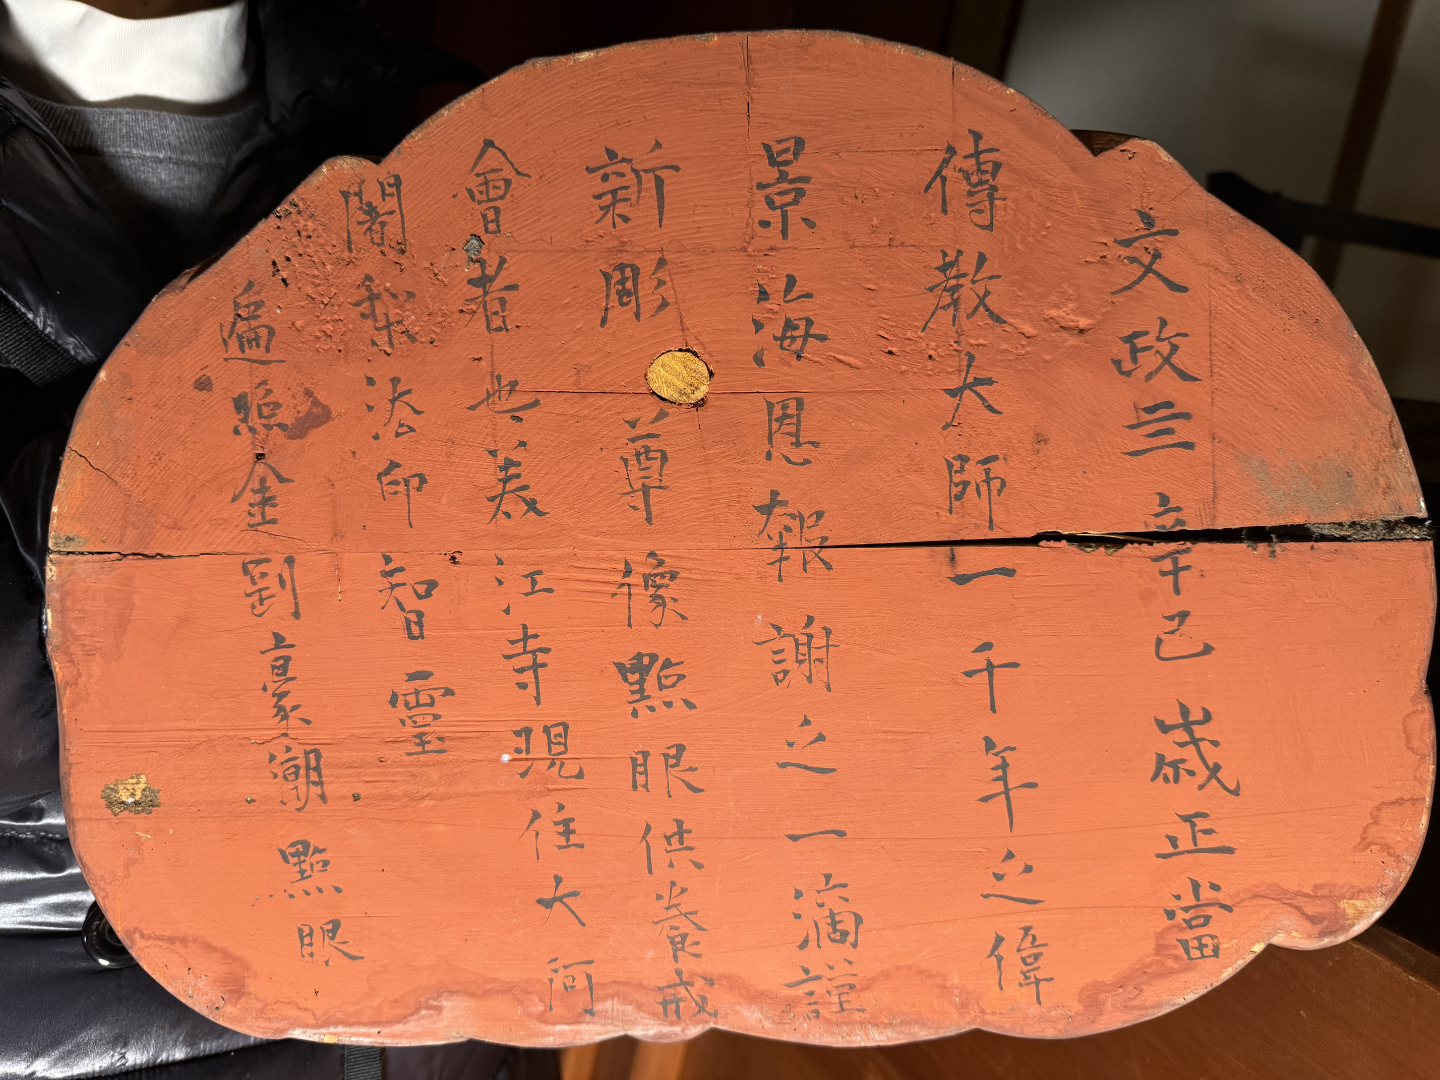 文政三辛巳歳正當
傳教大師一千年之偉
景海恩報謝之一滴謹
新彫尊像點眼供養戒
會者也美江寺現住大阿
闍梨法印智靈
遍照金剛豪潮點眼